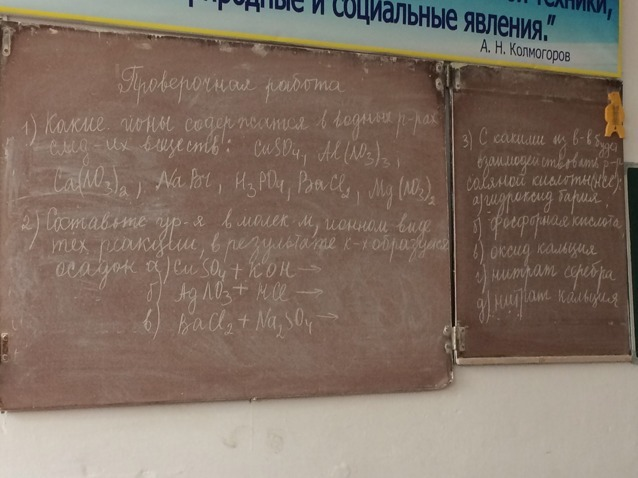 природные и социальные явления."
техники,
А. Н. Колмогоров
Проверочная работа
1) Какие ионы содержатся в водных р-рах
след-их веществ: CuSO4, Al(NO3)3,
Ca(NO3)2, NaBr, H3PO4, BaCl2, Mg(NO3)2
2) Составьте ур-я в молек-м, ионном виде
тех реакций, в результате к-х образуется
осадок а) CuSO4 + KOH →
б) AgNO3 + HCl →
в) BaCl2 + Na2SO4 →
3) С какими из в-в будет
взаимодействовать р-р
соляной кислоты (HCl):
а) гидроксид бария
б) фосфорная кислота
в) оксид кальция
с) нитрат серебра
д) нитрат кальция